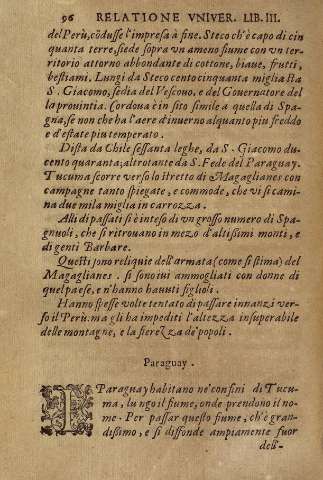 96 RELATIONE VNIVER. LIB. III.
del Perù, cõdusse l'impresa à fine. Steco ch'è capo di cin
quanta terre, siede sopra vn ameno fiume con vn ter-
ritorio attorno abbondante di cottone, biaue, frutti,
bestiami. Lungi da Steco cento cinquanta miglia sta
S. Giacomo, sedia del Vescouo, e del Gouernatore del
la prouintia. Cordoua è in sito simile a quella di Spa-
gna, se non che ha l'aere d'inuerno alquanto piu freddo
e d'estate piu temperato.
Dista da Chile sessanta leghe, da S. Giacomo du-
cento quaranta; altrotante da S. Fede del Paraguay.
Tucuma scorre verso lo stretto di Magaglianes con
campagne tanto spiegate, e commode, che vi si cami-
na due mila miglia in carrozza.
Alli dì passati si è inteso di vn grosso numero di Spa-
gnuoli, che si ritrouano in mezo d'altissimi monti, e
di genti Barbare.
Questi sono reliquie dell'armata (come si stima) del
Magaglianes. si sono iui ammogliati con donne di
quel paese, e n'hanno hauuti figlioli.
Hanno spesse volte tentato di passare innanzi ver-
so il Perù. ma gli ha impediti l'altezza insuperabile
delle montagne, e la fierezza de' popoli.
Paraguay.
IL Paraguay habitano ne' confini di Tucu-
ma, lungo il fiume, onde prendono il no-
me. Per passar questo fiume, ch'è gran-
dissimo, e si diffonde ampiamente fuor
dell-